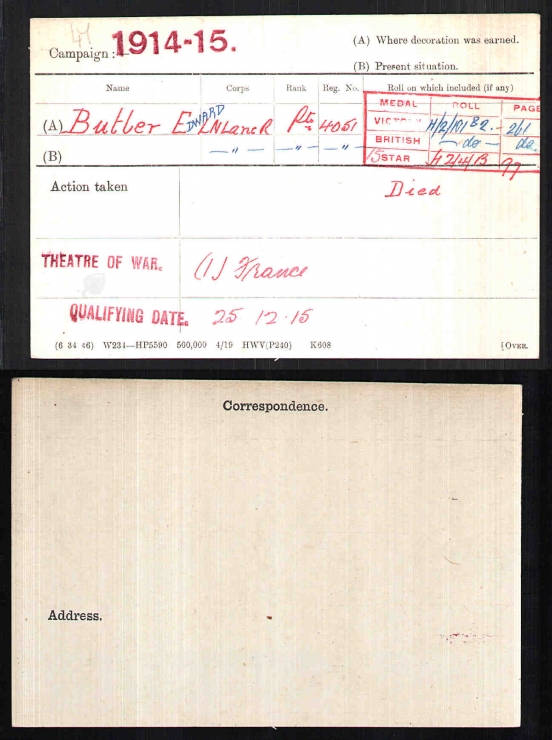 Campaign: 1914-15.
(A) Where decoration was earned.
(B) Present situation.
Name Corps Rank Reg. No. Roll on which included (if any)
MEDAL ROLL PAGE
(A) Butler EDWARD N Lanc R Pte 4051
VICTORY H/2/101 B2. 261
(B) " " "
BRITISH do do.
15 STAR H 2/4/B 97
Action taken
Died
THEATRE OF WAR. (1) France
QUALIFYING DATE. 25 12.15
(6 34 46) W234—HP5590 500,000 4/19 HWV(P240) K608 [OVER.
Correspondence.
Address.